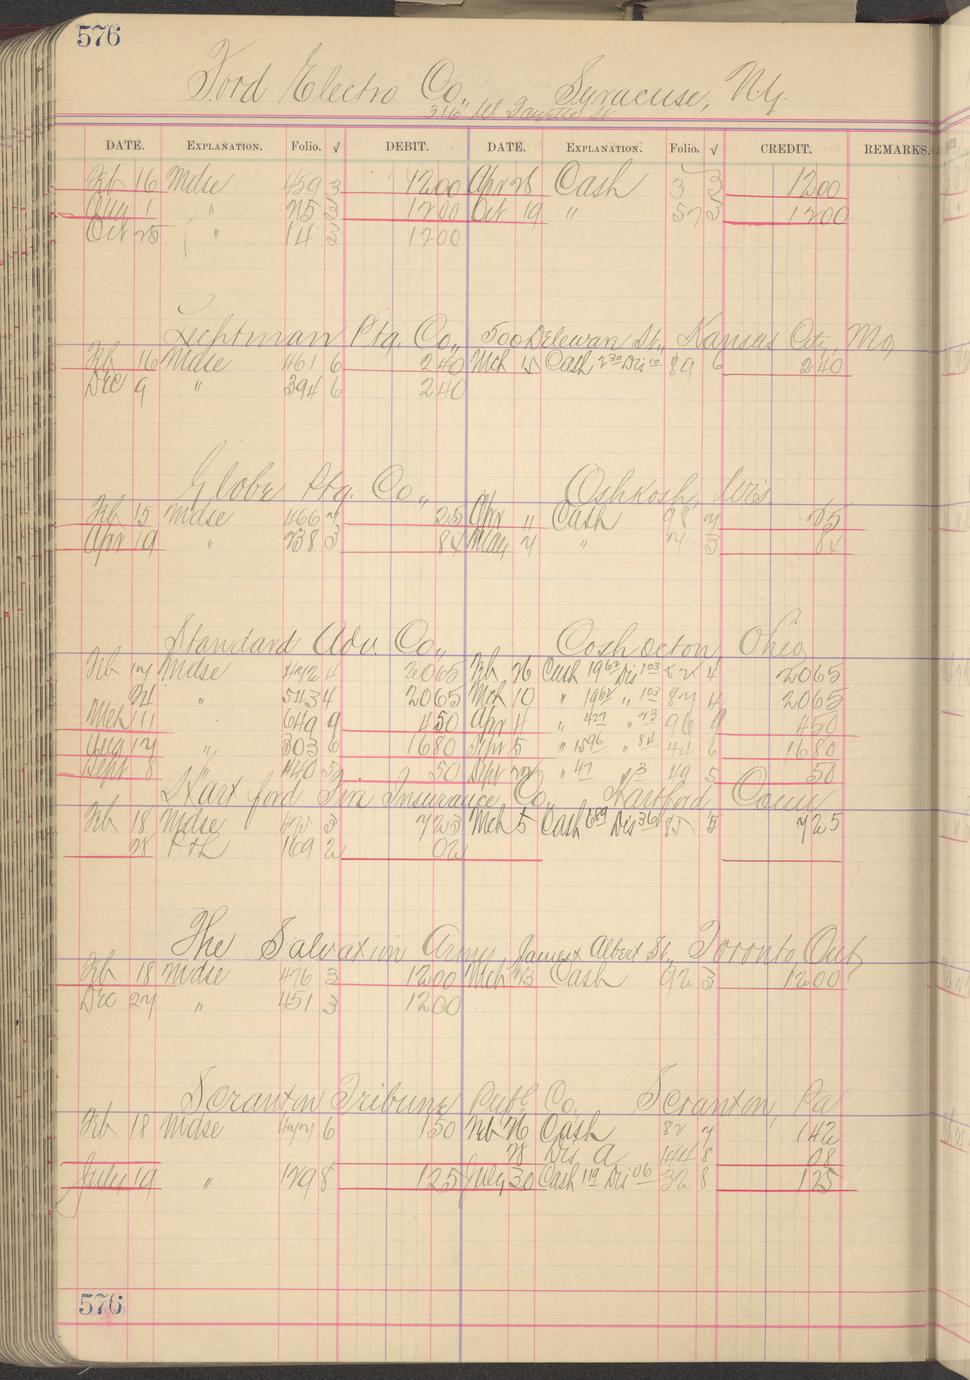 576
Ford Electro Co., Syracuse, N.Y.
316 W
DATE. EXPLANATION. Folio. √ DEBIT. DATE. EXPLANATION. Folio. √ CREDIT. REMARKS.
Feb 16 Mdse 459 3 1200 Apr 28 Cash 3 3 1200
Aug 1 " 215 3 1200 Oct 19 " 57 3 1200
Oct 25 " 14 3 1200
Ptg. Co., 500 Delewan St., Kansas City, Mo
Feb 16 Mdse 461 6 240 Mch 15 Cash 2 30 Dis 10 89 6 240
Dec 9 " 394 6 240
Globe Ptg. Co., Oshkosh, Wis
Feb 15 Mdse 466 7 25 Apr " Cash 98 7 25
Apr 19 " 238 3 84 May 7 " 7 3 84
Standard Adv. Co., Coshocton Ohio,
Feb 17 Mdse 472 4 2065 Feb, 26 Cash 19 62 Dis 103 82 4 2065
24 " 543 4 2065 Mch 10 " 19 62 " 103 87 4 2065
Mch 11 649 9 450 Apr 4 " 427 " 23 96 9 450
Aug 17 " 303 6 1680 Sept 5 " 15 96 " 84 44 6 1680
Sept 8 " 440 5 50 Sept 22 " 47 " 3 49 5 50
Hartford Fire Insurance Co., Hartford Conn
Feb 18 Mdse 475 3 723 Mch 5 Cash 689 Dis 36 85 3 725
28 Pth 169 2 02
The Salvation Army, James & Albert St., Toronto, Ont,
Feb 18 Mdse 476 3 1200 Mch 23 Cash 92 3 1200
Dec 27 " 451 3 1200
Scranton Tribune Publ Co., Scranton, Pa
Feb 18 Mdse 477 6 150 Feb 26 Cash 82 7 142
28 Dis a 144 8 08
July 19 " 129 8 125 July 30 Cash 119 Dis 06 32 8 125
576